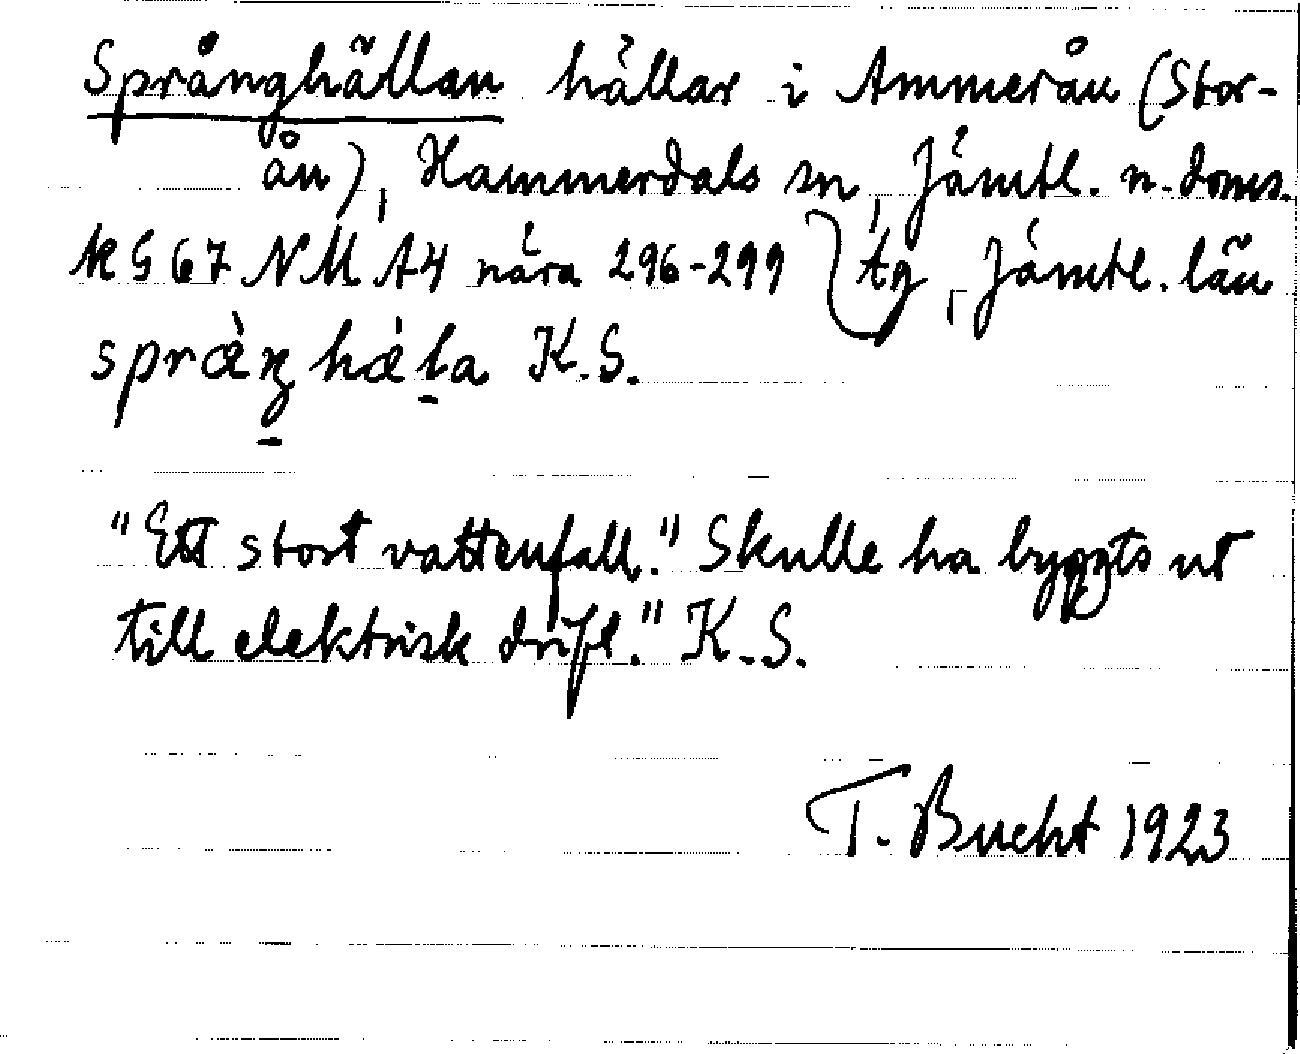 Språnghällan hällar i Ammerån (Stor-
ån), Hammerdals sn, Jämtl. n. doms.
KG 67 NM A4 nära 296-299 tg, Jämtl. län
K.S.
"Ett stort vattenfall." Skulle ha byggts ut
till elektrisk drift." K.S.
T. Bucht 1923